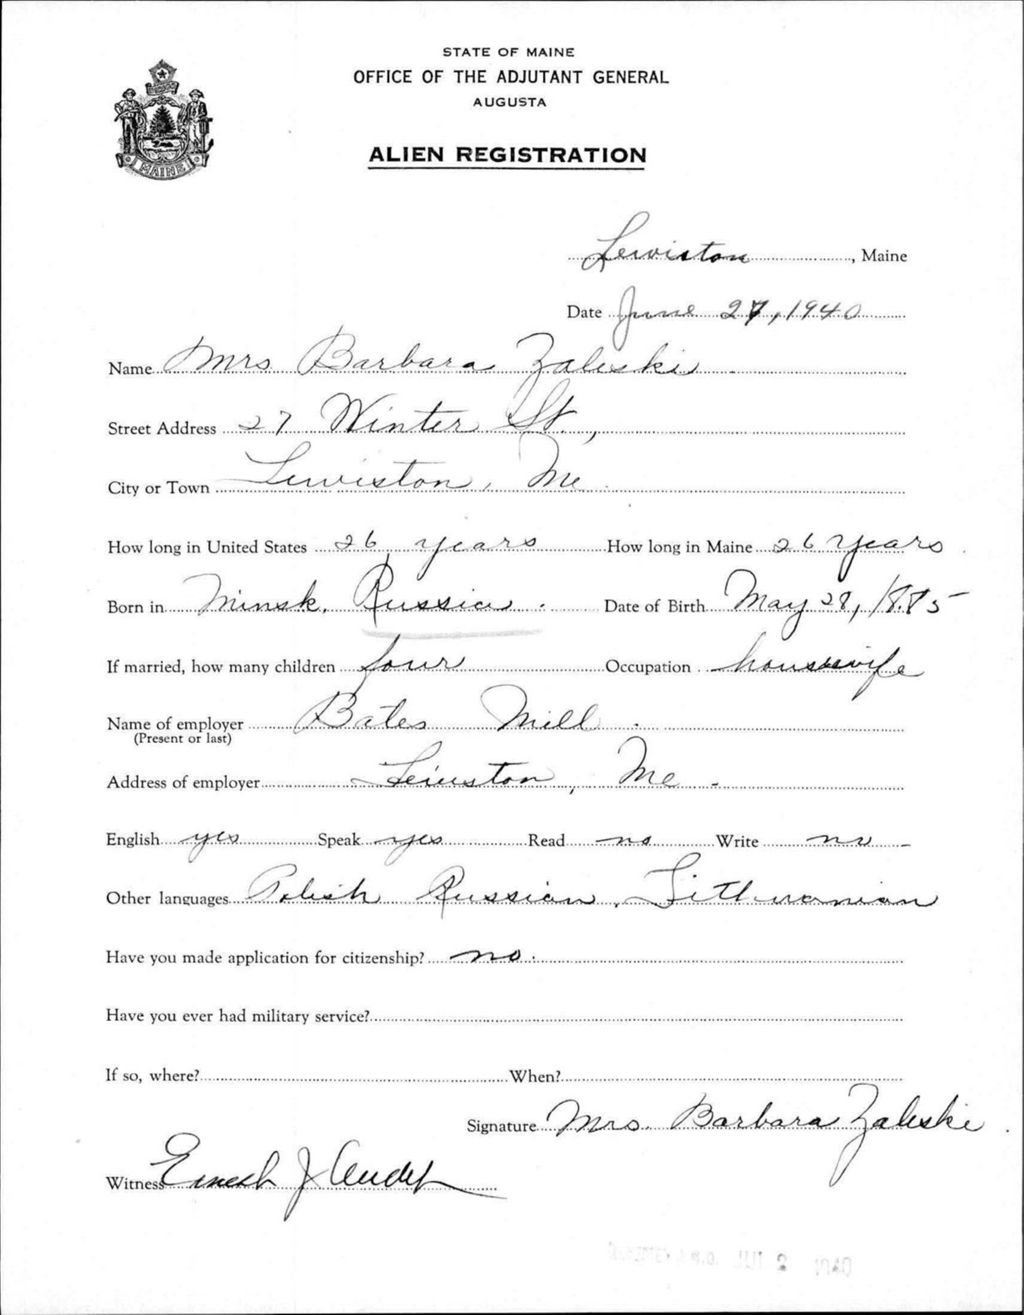 STATE OF MAINE
OFFICE OF THE ADJUTANT GENERAL
AUGUSTA
ALIEN REGISTRATION
MAINE
Lewiston, Maine
Date June 27, 1940
Name Mrs Barbara Zaleski
Street Address 27 Winter St.,
City or Town Lewiston, Me.
How long in United States 26 years How long in Maine 26 Years
Born in Minsk, Russia. Date of Birth May 28, 1885
If married, how many children four Occupation housewife
Name of employer Bates Mill.
(Present or last)
Address of employer Lewiston, Me.
English yes Speak yes Read no Write no
Other languages Polish Russian, Lithuanian
Have you made application for citizenship? no.
Have you ever had military service?
If so, where? When?
Signature Mrs. Barbara Zaleski
Witness Ernest J Audet
A.G.O. JUL 2 1940